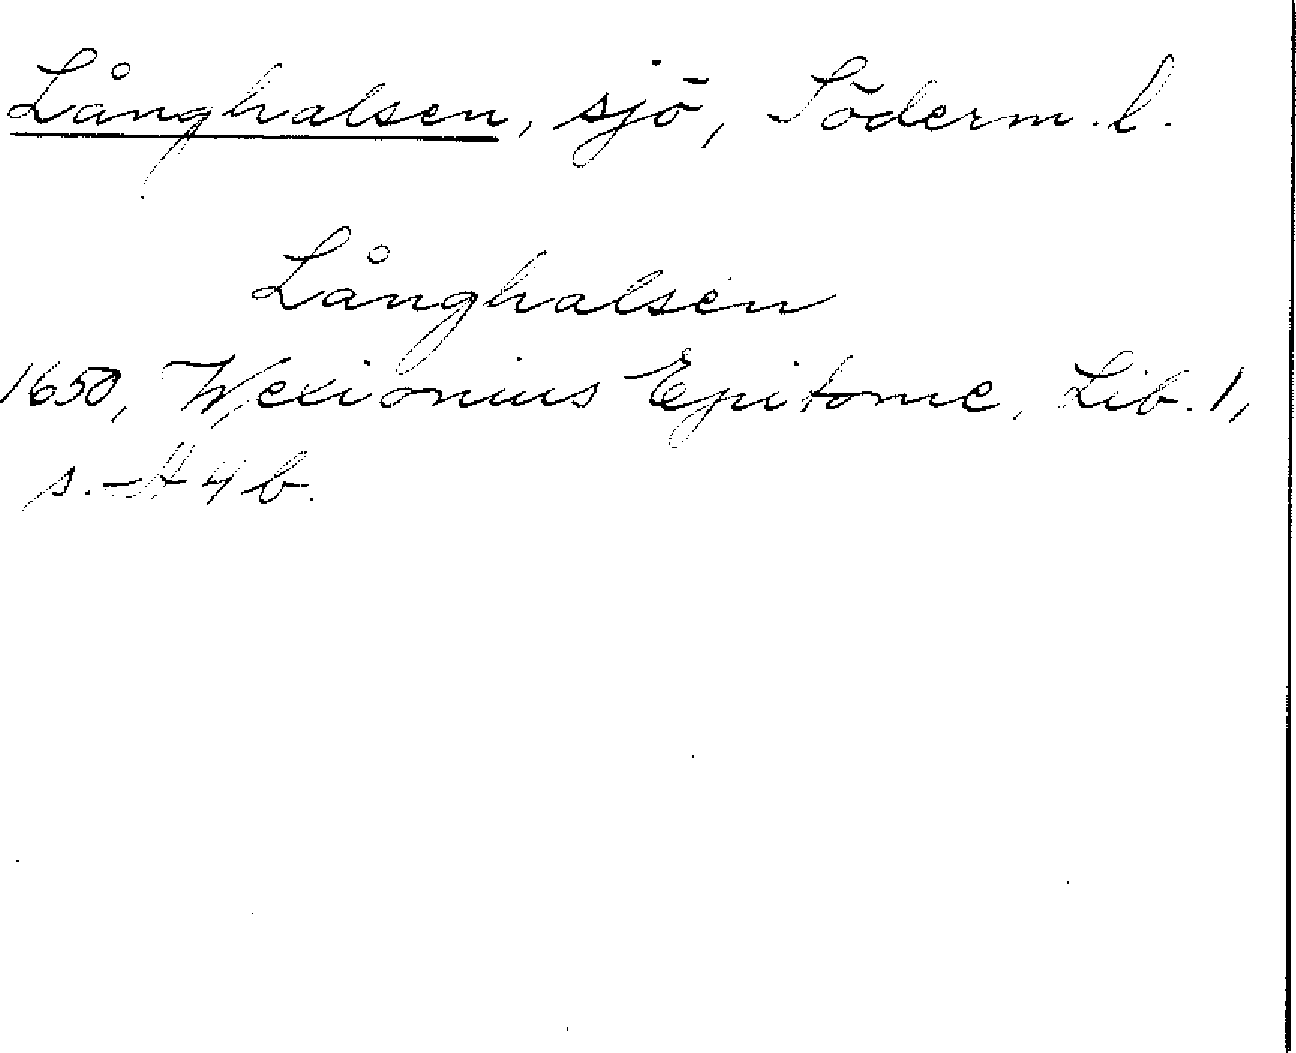 Långhalsen, sjö, Söderm. l.
Långhalsen
1650, Wexionius Epitome, Lib. 1,
s. H 4 b.